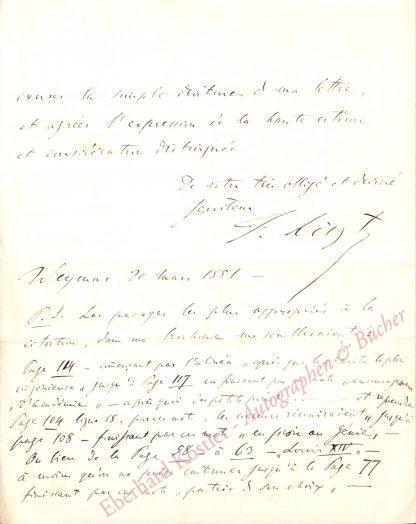 excuser la simple écriture de ma lettre,
et agréer l'expression de la haute estime
et considération distinguée
De votre très obligé et dévoué
serviteur
F. Liszt
Weymar 20 Mars 1851 -
P. S. Les passages les plus appropriés à la
citation, dans ma brochure me sembleraient
Page 114 - commençant par l'alinéa "après que
ingénieuse" jusqu'à Page 117 finissant par
"d'académie" -
Page 104 ligne 18, par ces mots "les jusqu'à
page 108 - finissant par ces mots "en génie, -
Ou bien de la Page 58 à 63 - Louis XIV -
à moins qu'on ne jusqu'à la Page 77
finissant par ces mots "patrie de son choix, -
Eberhard Köstler - Autographen & Bücher